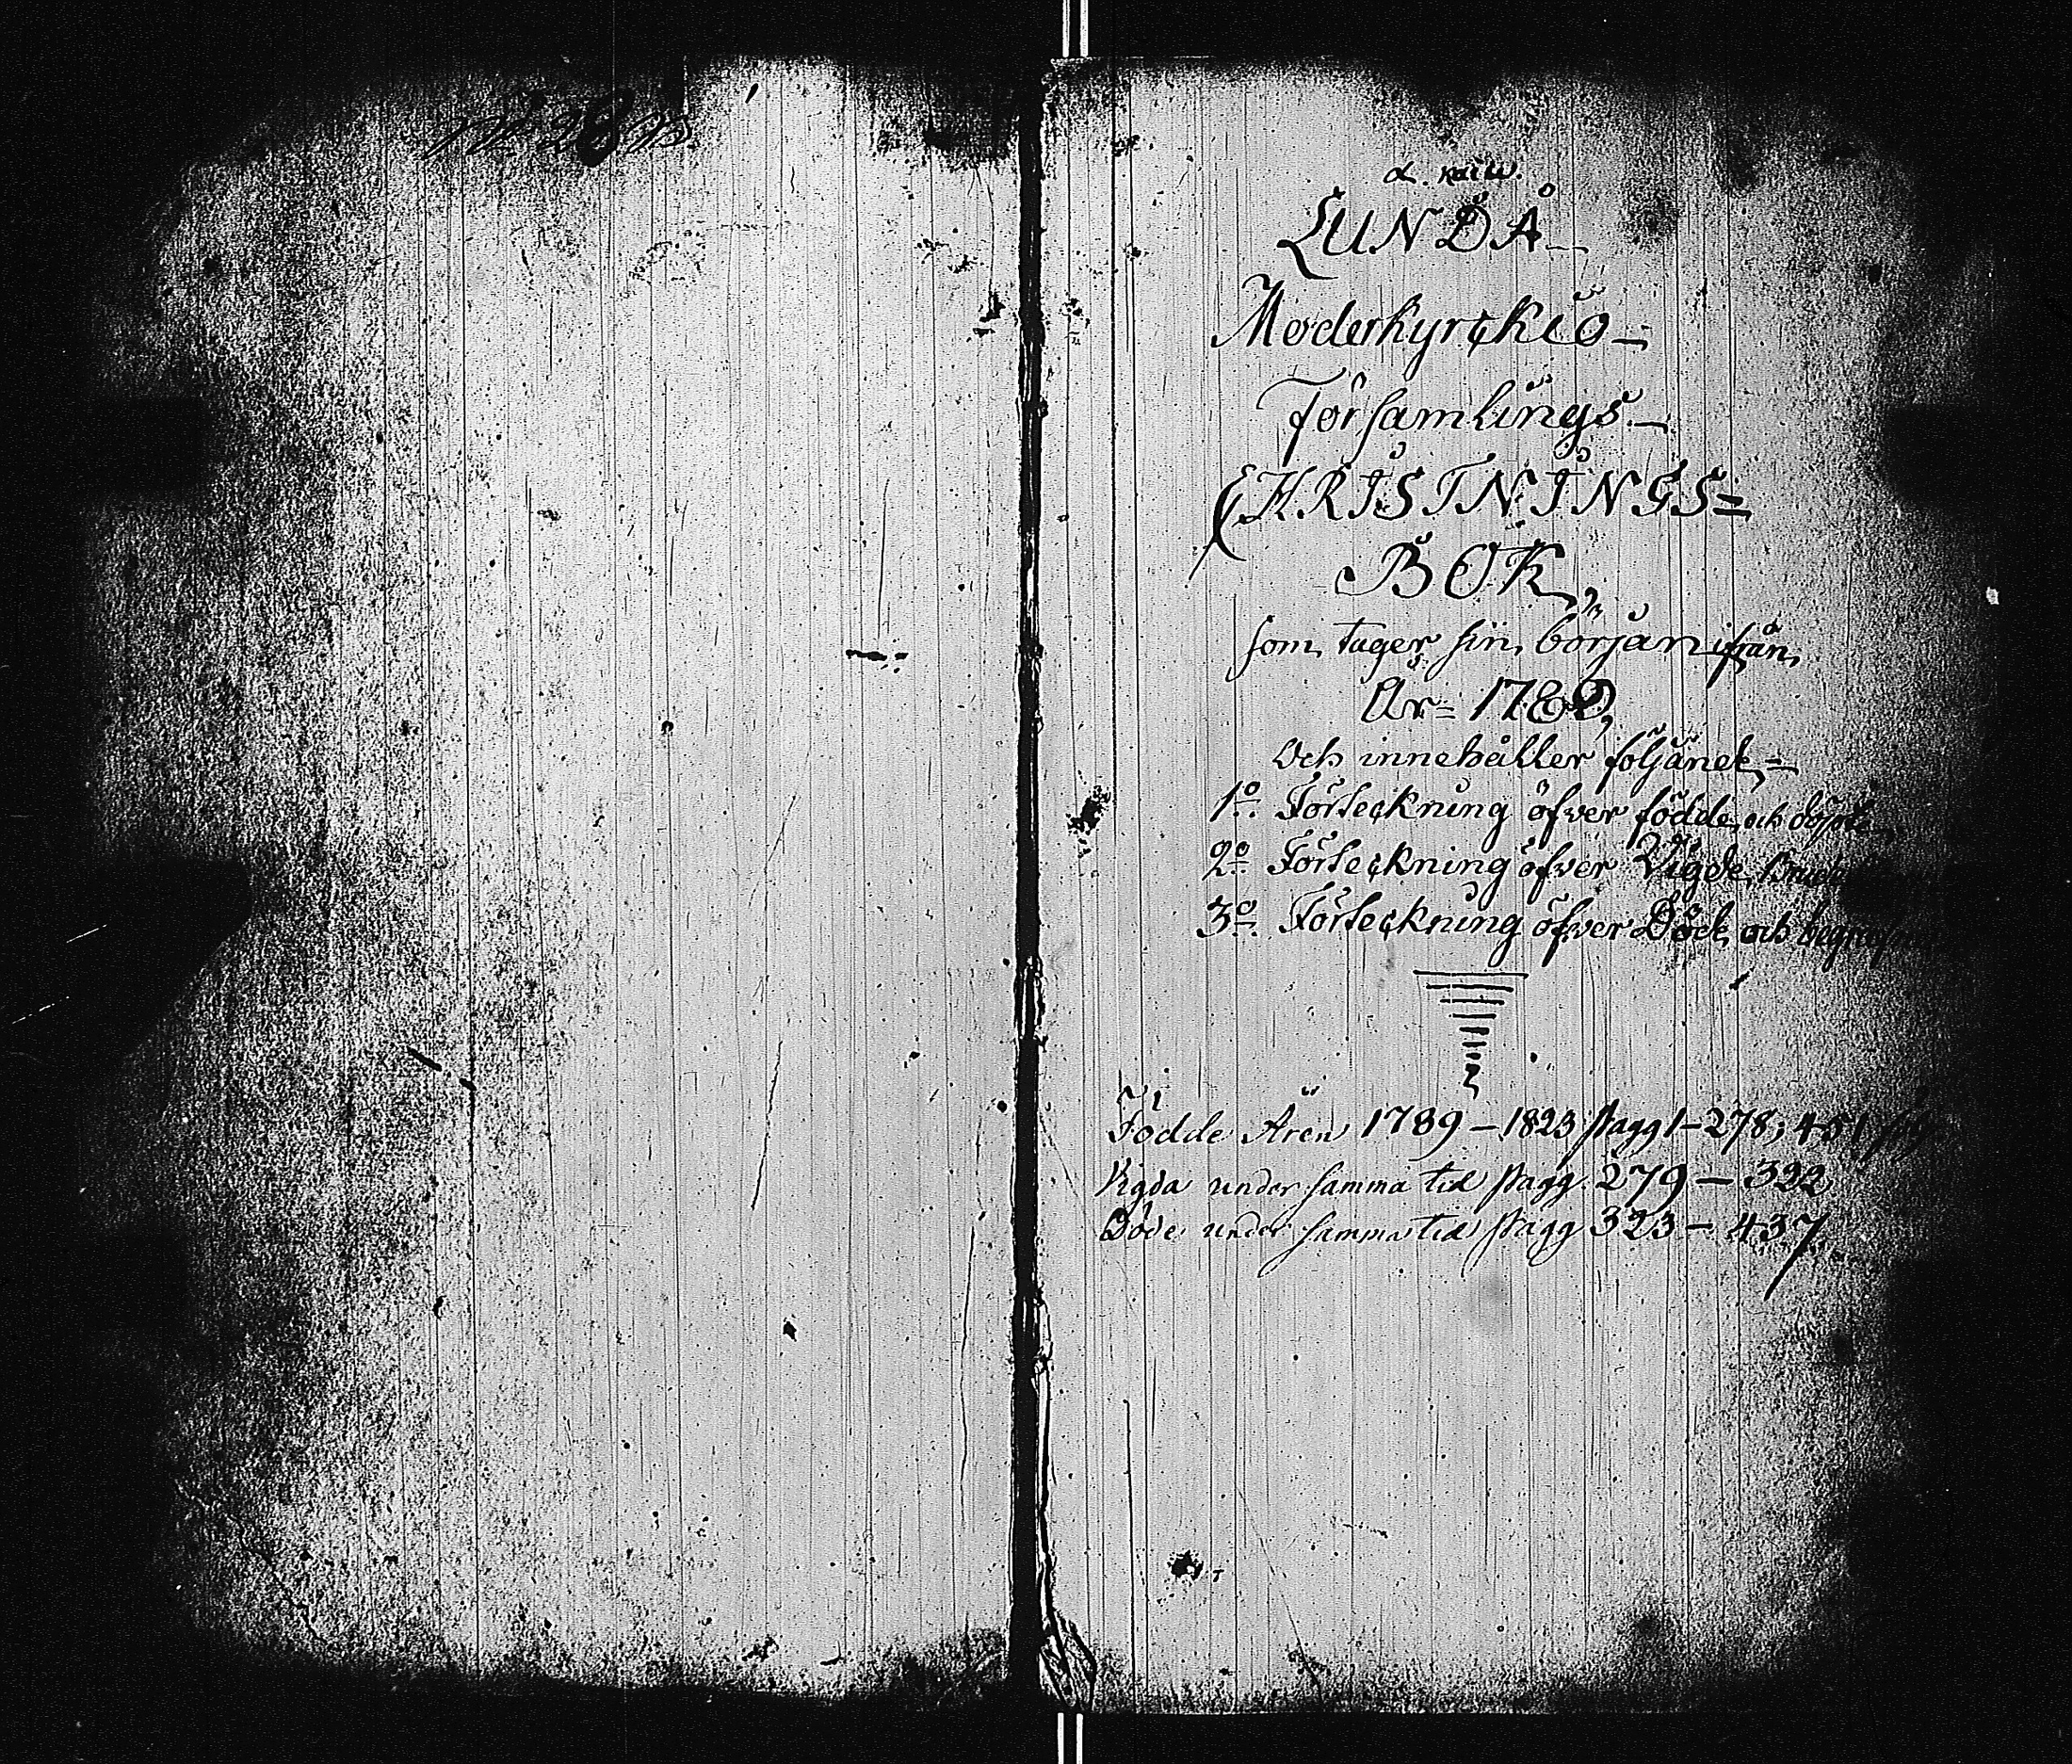 LUNDÅ
Moderkyrckio-
Församlings-
CHRISTNINGS=
BOK,
som tager sin början ifrån
År= 1789,
och innehåller följande=
1o. Förteckning öfver födde och döpte
2o. Förteckning öfver Vigde Brude
3o. Förteckning öfver Döde och
Födde Åren 1789-1823 pagg 1-278; 451
Vigda under samma tid pagg. 279-322
Döde under samma tid pagg 323-437.